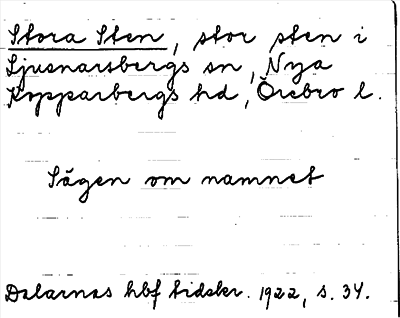 Stora Sten, stor sten i
Ljusnarsbergs sn, Nya
Kopparbergs hd, Örebro l.
Sägen om namnet
Dalarnas hbf tidskr. 1922, s. 34.